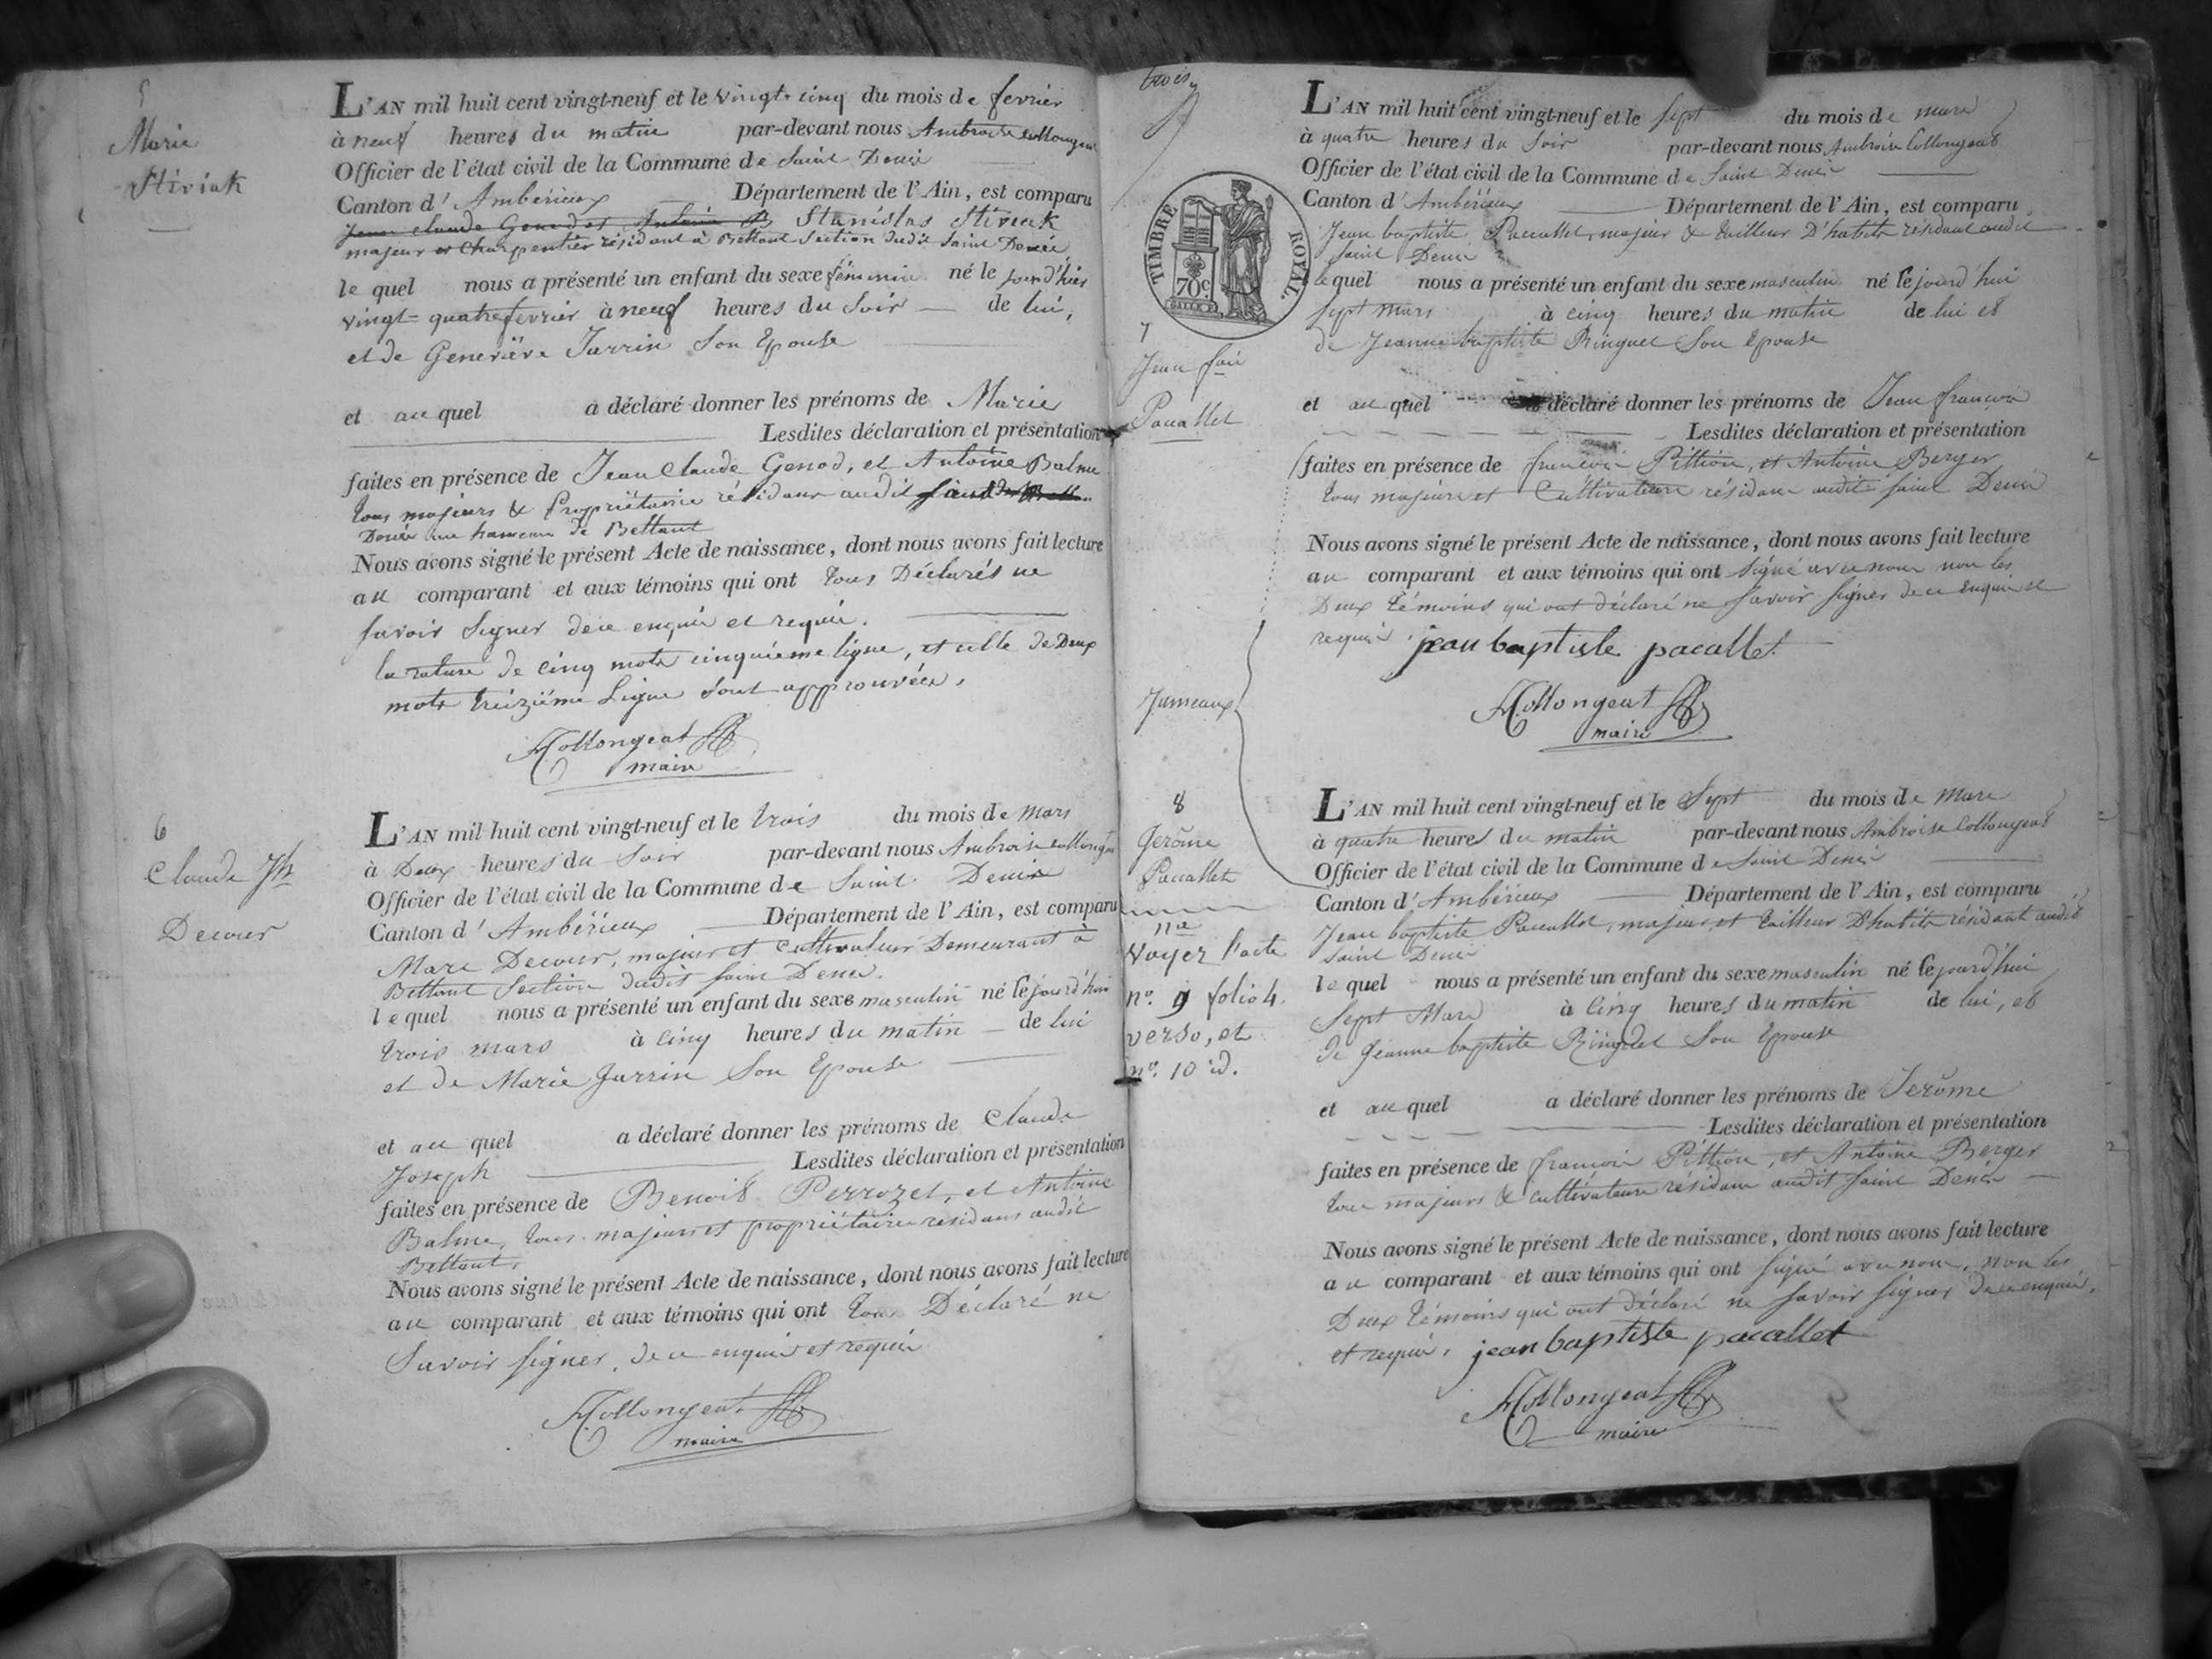 5
Marie
Stiviak
L'AN mil huit cent vingt-neuf et le vingt-cinq du mois de fevrier
à neuf heures du matin par-devant nous Ambroise Collongeat
Officier de l'état civil de la Commune de Saint Denis
Canton d'Ambérieux Département de l'Ain, est comparu
Jean Claude Genod et Antoine B Stanislas Stiviak
majeur et Charpentier résidant à Bettant Section dudit Saint Denis
lequel nous a présenté un enfant du sexe féminin né le jourd'hier
vingt-quatre fevrier à neuf heures du Soir de lui,
et de Geneviève Jarrin Son Epouse
et au quel a déclaré donner les prénoms de Marie
Lesdites déclaration et présentation
faites en présence de Jean Claude Genod, et Antoine Balme
tous majeurs & Propriétaires résidans audit Saint
Denis au hameau de Bettant
Nous avons signé le présent Acte de naissance, dont nous avons fait lecture
au comparant et aux témoins qui ont tous Déclarés ne
savoir Signer de ce enquis et requis.
la rature de cinq mots cinquième ligne, et celle de Deux
mots treizième Ligne sont approuvées,
ACollongeat
maire
6
Claude Jh
Decour
L'AN mil huit cent vingt-neuf et le trois du mois de mars
à Deux heures du Soir par-devant nous Ambroise Collongeat
Officier de l'état civil de la Commune de Saint Denis
Canton d'Ambérieux Département de l'Ain, est comparu
Marc Decour, majeur et cultivateur Demeurant à
Bettant Section dudit Saint Denis.
lequel nous a présenté un enfant du sexe masculin né le jourd'hui
trois mars à cinq heures du matin de lui
et de Marie Jarrin Son Epouse
et au quel a déclaré donner les prénoms de Claude
Joseph Lesdites déclaration et présentation
faites en présence de Benoit Perrozet, et Antoine
Balme, tous majeurs et propriétaires résidans audit
Bettant,
Nous avons signé le présent Acte de naissance, dont nous avons fait lecture
au comparant et aux témoins qui ont tous Déclaré ne
Savoir signer, de ce enquis et requis
ACollongeat
maire
trois
TIMBRE ROYAL.
70c
7
Jean fois
Pacallet
L'AN mil huit cent vingt-neuf et le sept du mois de mars
à quatre heures du Soir par-devant nous Ambroise Collongeat
Officier de l'état civil de la Commune de Saint Denis
Canton d'Ambérieux Département de l'Ain, est comparu
Jean baptiste Pacallet, majeur & tailleur D'habits résidant audit
Saint Denis
lequel nous a présenté un enfant du sexe masculin né le jourd'hui
sept mars à cinq heures du matin de lui et
de Jeanne baptiste Ringuet Son Epouse
et au quel a déclaré donner les prénoms de Jean françois
Lesdites déclaration et présentation
faites en présence de françois Pittion, et Antoine Berger
tous majeurs et Cultivateurs résidans audit Saint Denis
Nous avons signé le présent Acte de naissance, dont nous avons fait lecture
au comparant et aux témoins qui ont signé avec nous non les
Deux témoins qui ont déclaré ne savoir signer de ce enquis et
requis. jean baptiste pacallet
ACollongeat
maire
Jumeaux
8
Gerôme
Pacallet
nta
Voyez l'acte
no. 9 folio 4.
verso, et
no. 10 id.
L'AN mil huit cent vingt-neuf et le Sept du mois de mars
à quatre heures du matin par-devant nous Ambroise Collongeat
Officier de l'état civil de la Commune de Saint Denis
Canton d'Ambérieux Département de l'Ain, est comparu
Jean baptiste Pacallet, majeur, et tailleur D'habits résidant audit
Saint Denis
lequel nous a présenté un enfant du sexe masculin né le jourd'hui
Sept Mars à Cinq heures du matin de lui, et
de Jeanne baptiste Ringuet Son Epouse
et au quel a déclaré donner les prénoms de Jerôme
Lesdites déclaration et présentation
faites en présence de françois Pittion, et Antoine Berger
tous majeurs & cultivateurs résidans audit Saint Denis
Nous avons signé le présent Acte de naissance, dont nous avons fait lecture
au comparant et aux témoins qui ont signé avec nous, non les
Deux témoins qui ont déclaré ne savoir signer de ce enquis,
et requis, jean baptiste pacallet
ACollongeat
maire